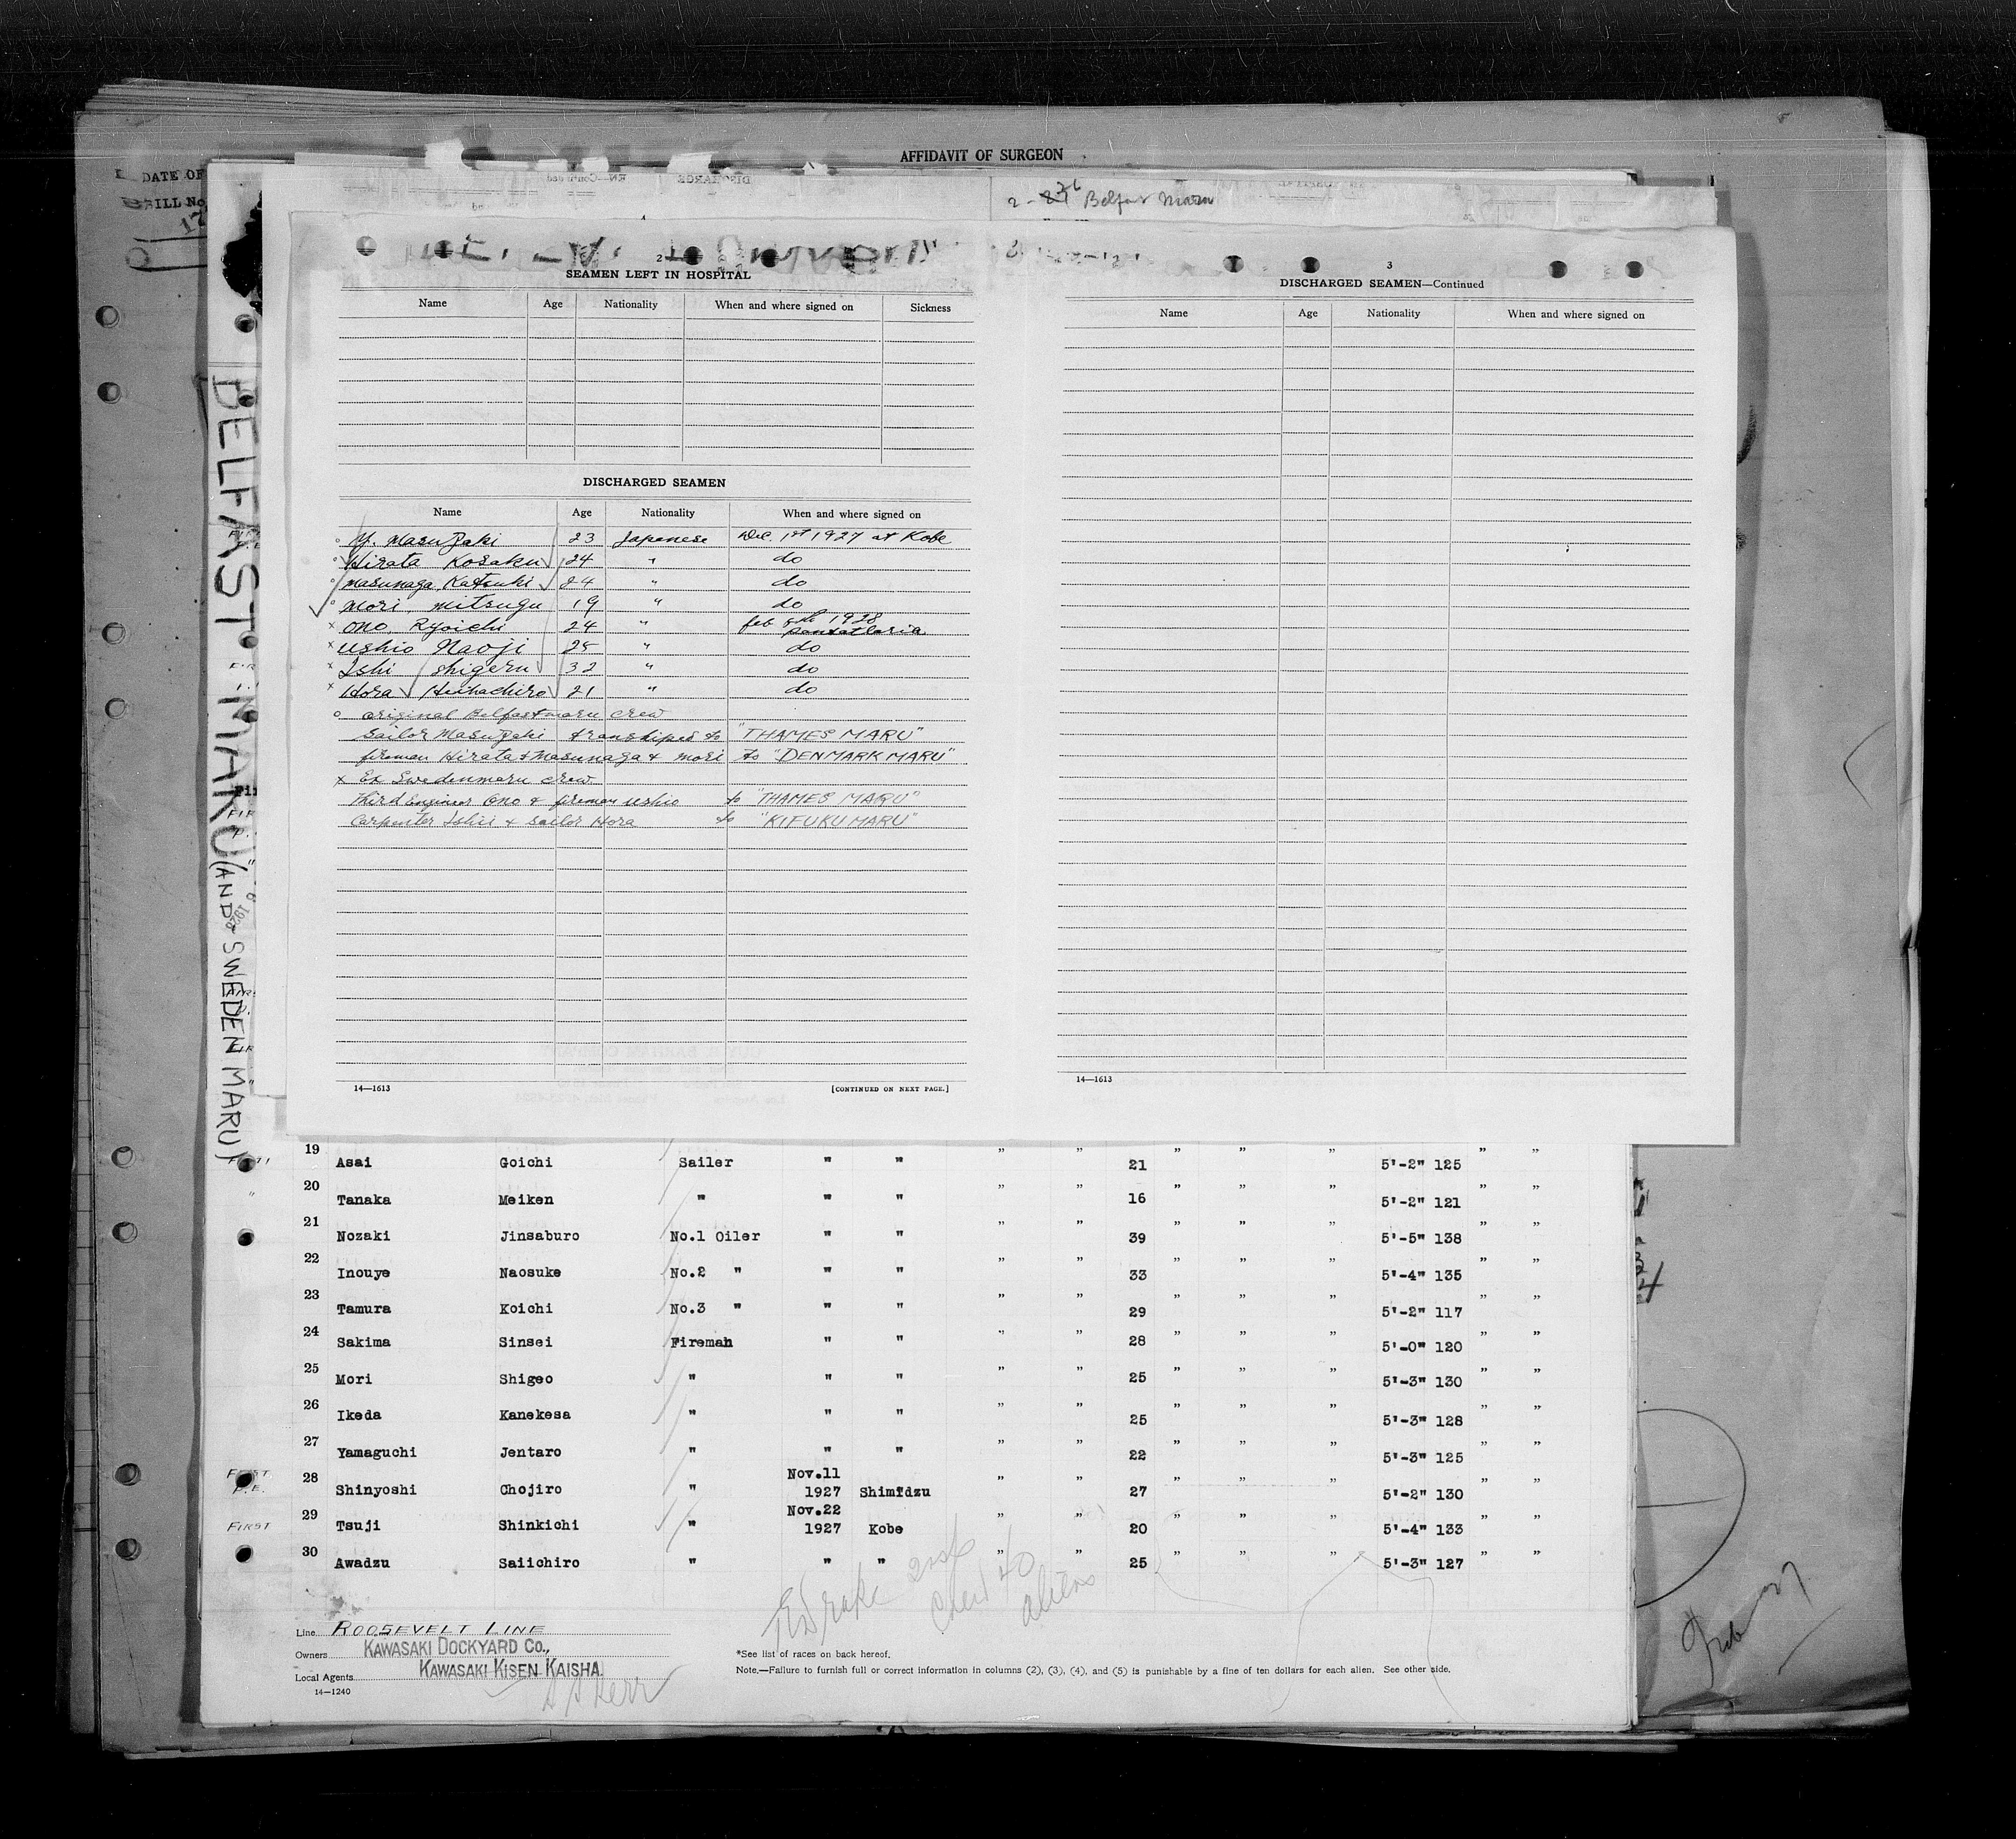 AFFIDAVIT OF SURGEON
DATE OF
BILL No.
17
2 - 26 Belfast Maru
BELFAST MARU (AND SWEDEN MARU)
2
SEAMEN LEFT IN HOSPITAL
Name Age Nationality When and where signed on Sickness
DISCHARGED SEAMEN
Name Age Nationality When and where signed on
o Y. Masuzaki 23 Japanese Dec. 1st 1927 at Kobe
o Hirata Kosaku 24 " do
o Masunaga, Katsuki 24 " do
o Mori, Mitsugu 19 " do
x Ono, Ryoichi 24 " feb 9th 1928
x Ushio Naoji 25 " do
x Ishi Shigeru 32 " do
x Hora Heihachiro 21 " do
o original Belfastmaru crew
Sailor Masuzaki transhiped to "THAMES MARU"
firemen Hirata & Masunaga & Mori to "DENMARK MARU"
x Ex Swedenmaru crew
Third Engineer Ono & fireman Ushio to "THAMES MARU"
Carpenter Ishii & Sailor Hora to "KIFUKU MARU"
14—1613 [CONTINUED ON NEXT PAGE.]
3
DISCHARGED SEAMEN—Continued
Name Age Nationality When and where signed on
14—1613
19 Asai Goichi Sailer " " " " 21 " " " 5'-2" 125 " "
20 Tanaka Meiken " " " " " 16 " " " 5'-2" 121 " "
21 Nozaki Jinsaburo No.1 Oiler " " " " 39 " " " 5'-5" 138 " "
22 Inouye Naosuke No.2 " " " " " 33 " " " 5'-4" 135 " "
23 Tamura Koichi No.3 " " " " " 29 " " " 5'-2" 117 " "
24 Sakima Sinsei Fireman " " " " 28 " " " 5'-0" 120 " "
25 Mori Shigeo " " " " " 25 " " " 5'-3" 130 " "
26 Ikeda Kanekesa " " " " " 25 " " " 5'-3" 128 " "
27 Yamaguchi Jentaro " " " " " 22 " " " 5'-3" 125 " "
Nov.11
28 Shinyoshi Chojiro " 1927 Shimidzu " " 27 " " " 5'-2" 130 " "
Nov.22
FIRST 29 Tsuji Shinkichi " 1927 Kobe " " 20 " " " 5'-4" 133 " "
30 Awadzu Saiichiro " " " " " 25 " " " 5'-3" 127 " "
aliens
Line ROOSEVELT LINE
Owners KAWASAKI DOCKYARD CO.,
KAWASAKI KISEN KAISHA.
Local Agents
A A Kerr
14—1240
*See list of races on back hereof.
Note.—Failure to furnish full or correct information in columns (2), (3), (4), and (5) is punishable by a fine of ten dollars for each alien. See other side.